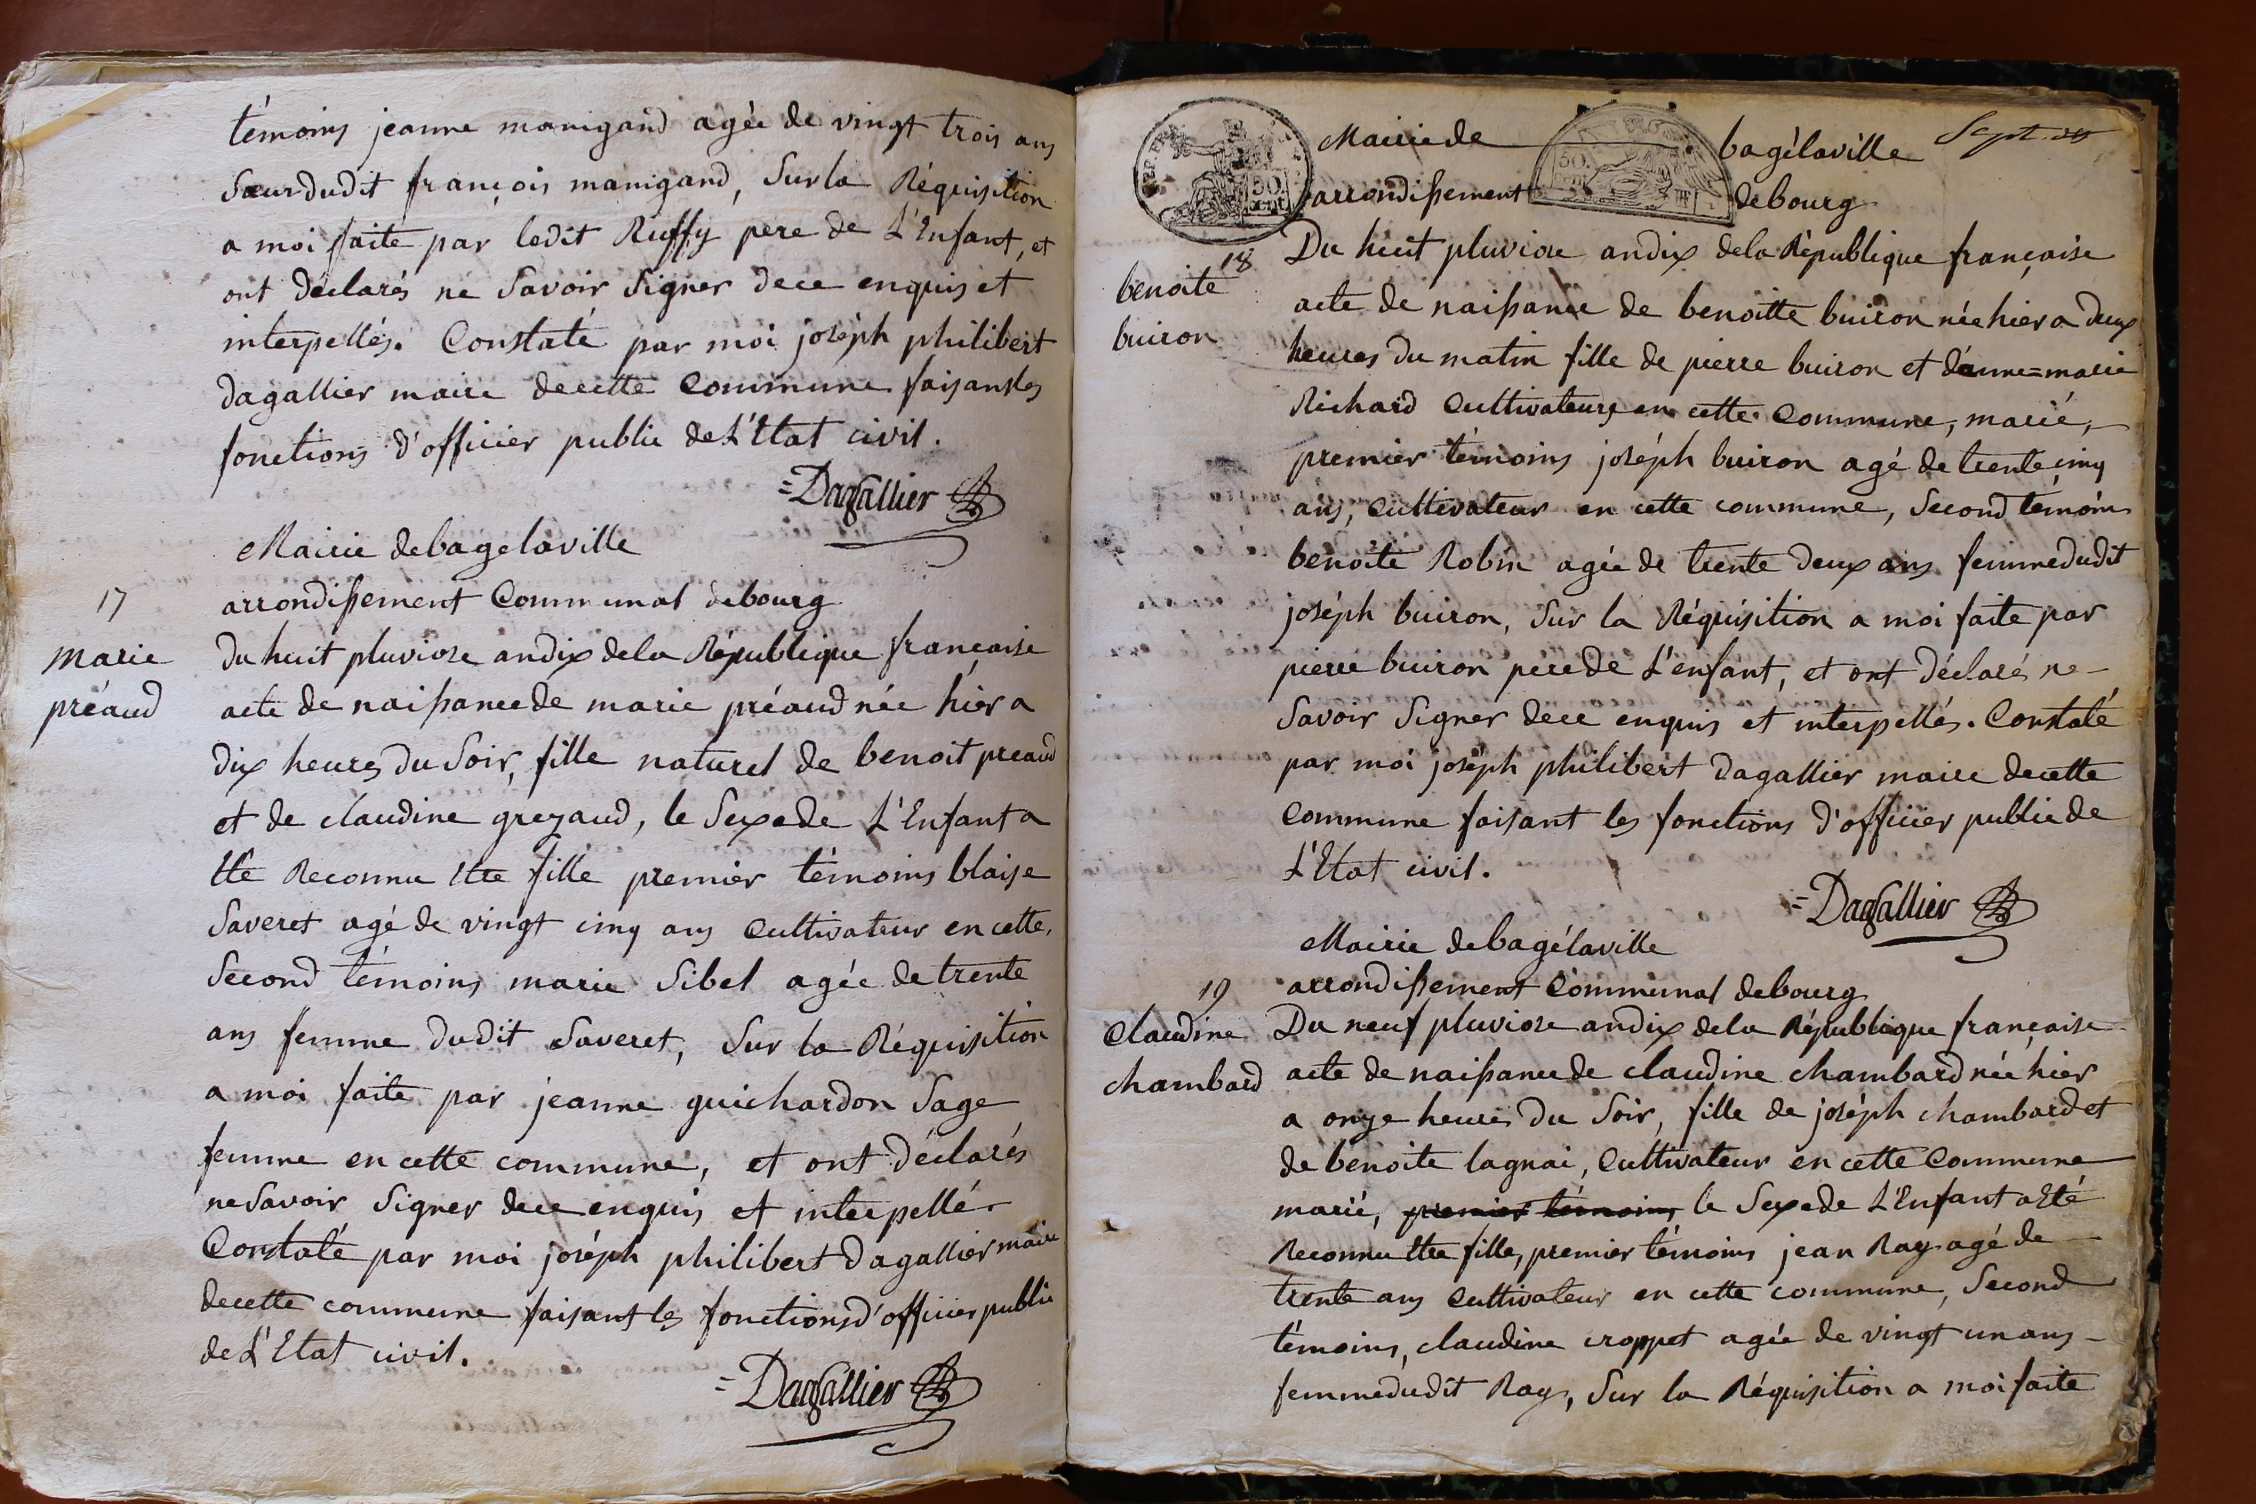 témoins jeanne manigand agée de vingt trois ans
Sœur dudit françois manigand, Sur la Réquisition
a moi faite par ledit Ruffy pere de L'Enfant, et
ont déclarés ne Savoir Signer de ce enquis et
interpellés. Constaté par moi joséph philibert
dagallier maire de cette Commune faisant les
fonctions d'officier public de L'Etat civil.
=Dagallier
Mairie de bagelaville
arrondissement Communal de bourg
17
marie
préaud
du huit pluviose an dix de la République française
acte de naissance de marie préaud née hier a
dix heures du Soir, fille naturel de benoit preaud
et de claudine greyaud, le Sexe de L'Enfant a
Eté Reconnu Etre fille premier témoins blaise
Saveret agé de vingt cinq ans Cultivateur en cette,
Second témoins marie Sibel agée de trente
ans femme dudit Saveret, Sur la Réquisition
a moi faite par jeanne guichardon Sage
femme en cette commune, et ont déclarés
ne Savoir Signer de ce enquis et interpellé.
Constaté par moi joséph philibert dagallier maire
de cette commune faisant les fonctions d'officier public
de L'Etat civil.
=Dagallier
Sept.
Mairie de bagélaville
arrondissement de bourg
50
cent
50
18
benoite
buiron
Du huit pluviose an dix de la République française
acte de naissance de benoitte buiron née hier a deux
heures du matin fille de pierre buiron et d'anne=marie
Richard Cultivateurs en cette Commune, marié,
premier témoins joséph buiron agé de trente cinq
ans, Cultivateur en cette commune, Second témoins
benoite Robin agée de trente deux ans femme dudit
joséph buiron, Sur la Réquisition a moi faite par
pierre buiron pere de L'enfant, et ont déclarés ne
Savoir Signer de ce enquis et interpellés. Constaté
par moi joséph philibert dagallier maire de cette
Commune faisant les fonctions d'officier public de
L'Etat civil.
=Dagallier
Mairie de bagélaville
arrondissement Communal de bourg
19
Claudine
chambard
Du neuf pluviose an dix de la République française
acte de naissance de claudine chambard née hier
a onze heures du Soir, fille de joséph chambard et
de benoite lagnai, Cultivateur en cette Commune
marié, premier témoins le Sexe de L'Enfant a Eté
Reconnu Etre fille, premier témoins jean Ray agé de
trente ans Cultivateur en cette commune, Second
témoins, claudine croppet agée de vingt un ans
femme dudit Ray, Sur la Réquisition a moi faite